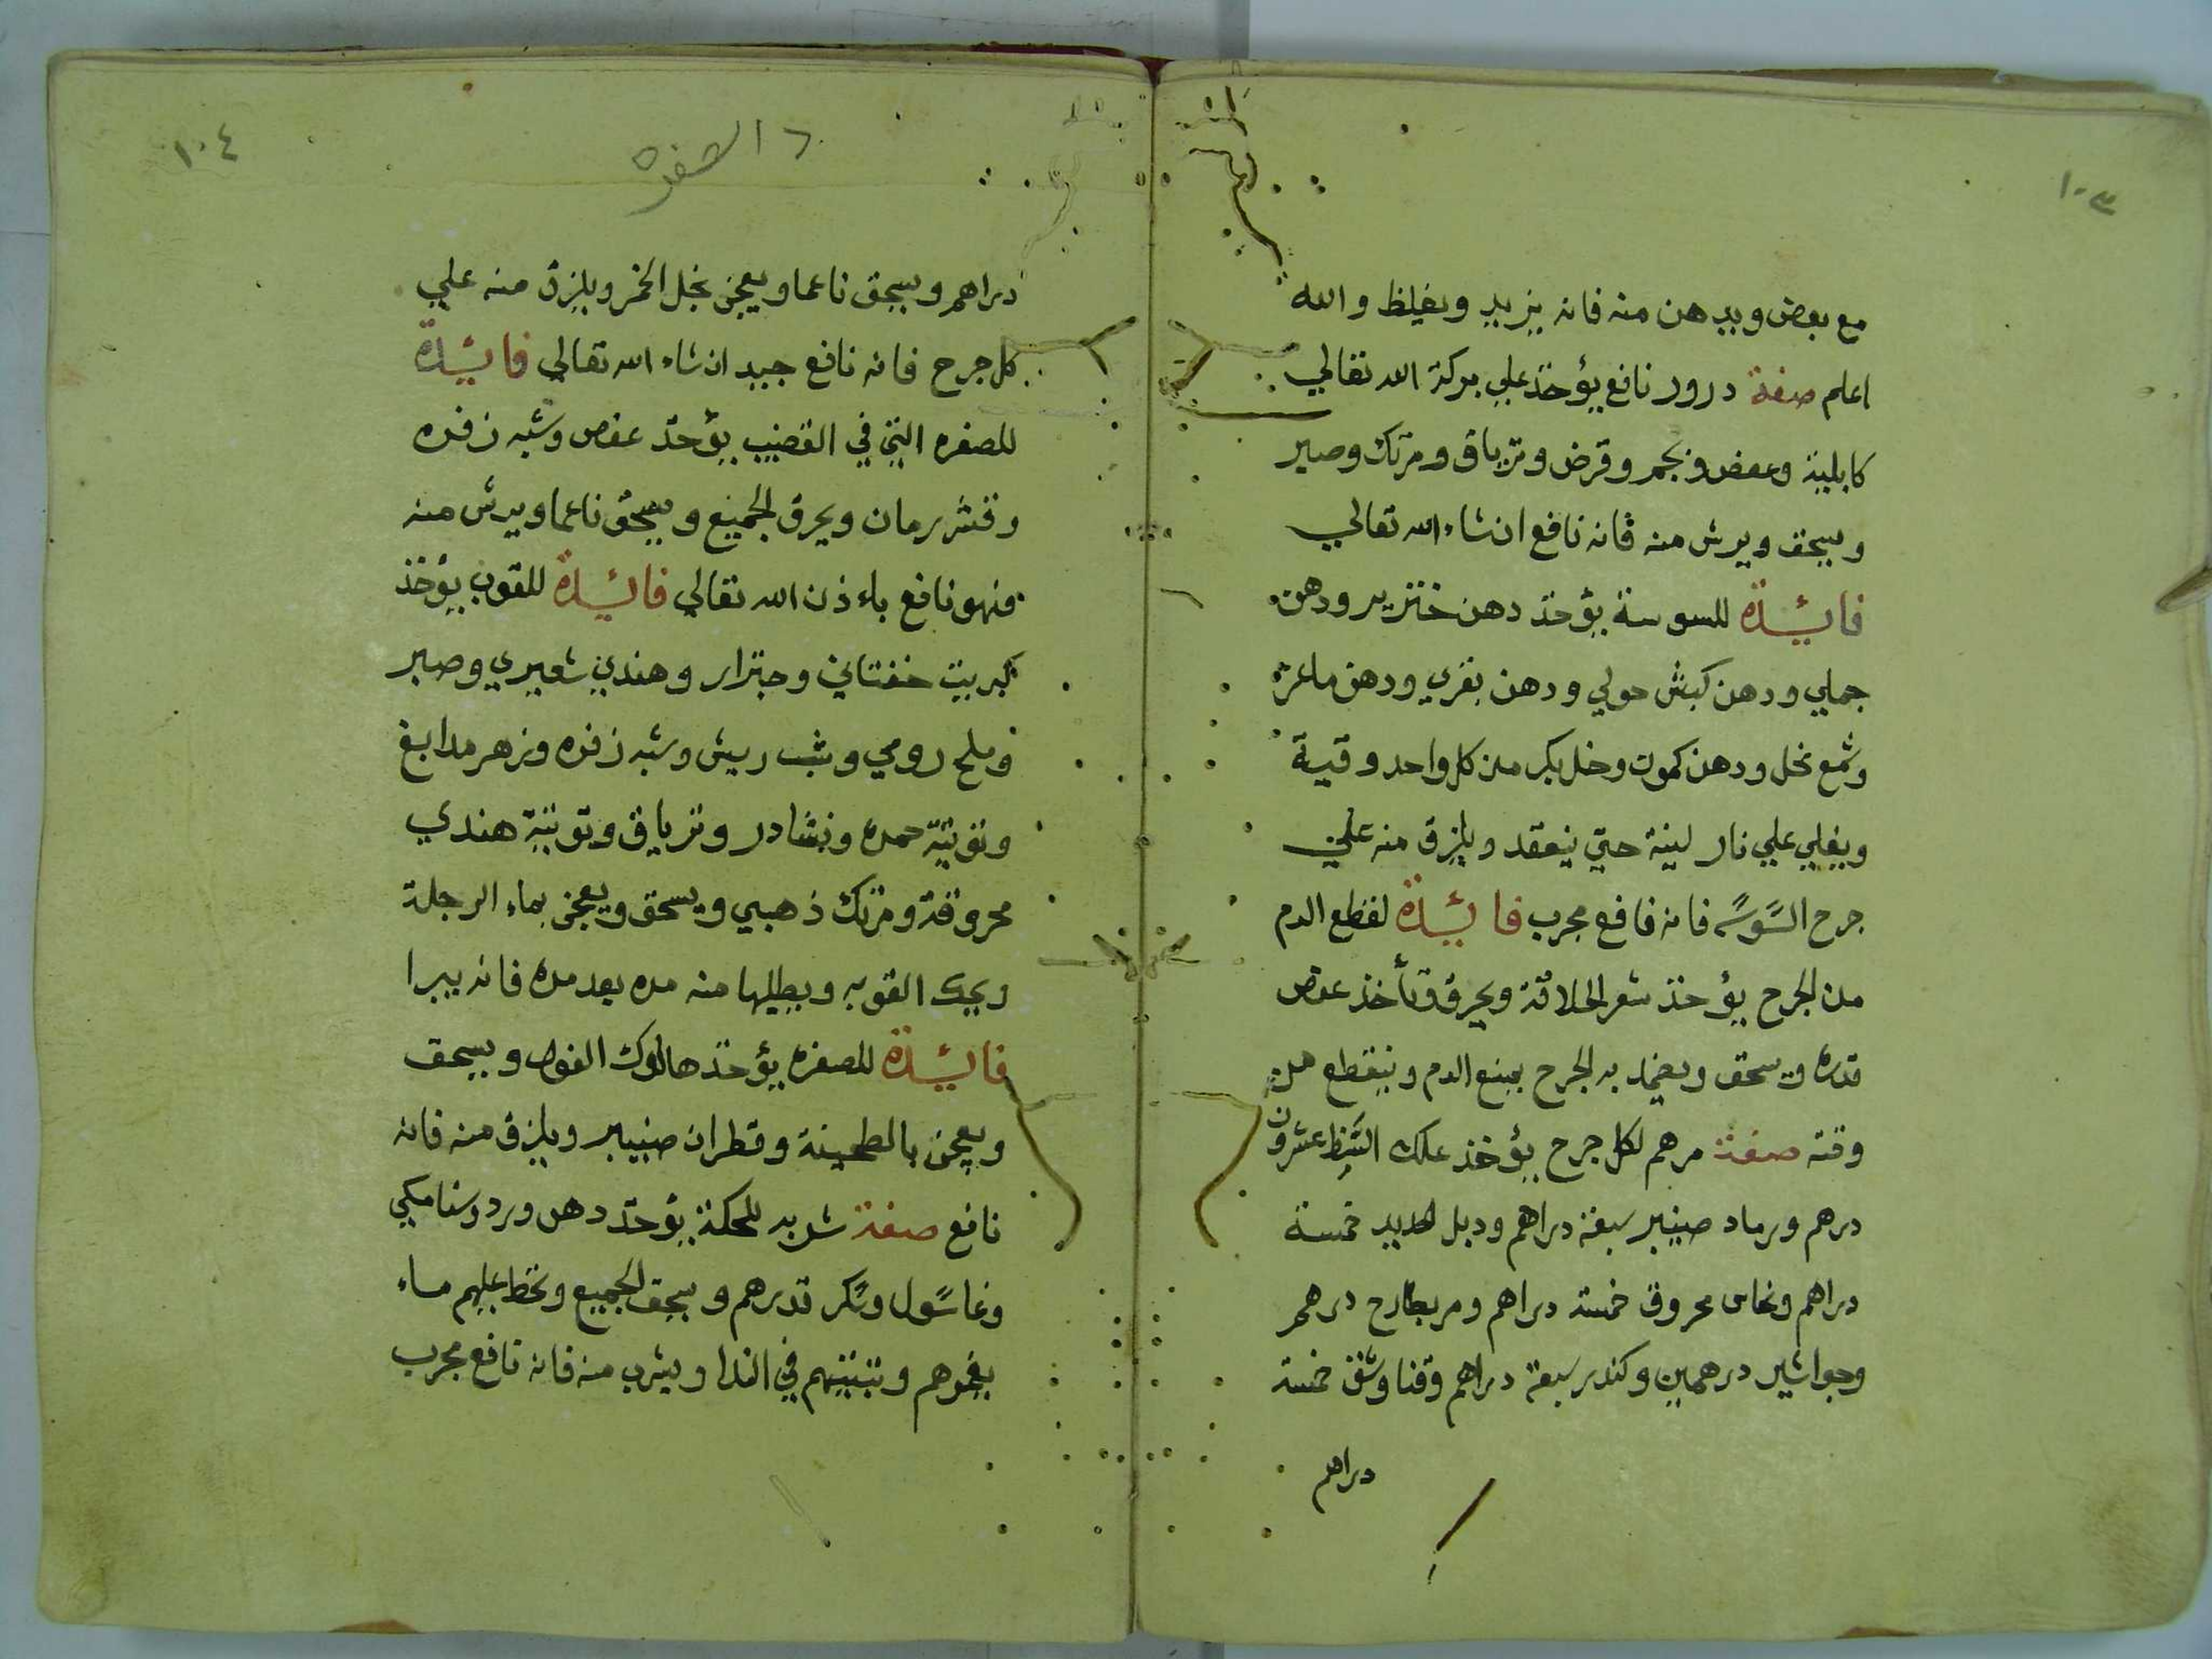 ١٠٣
مع بعض ويدهن منه فانه يزيد ويغلظ والله
اعلم صفة درور نافع يؤخذ علي بركة الله تعالي
كابلية وعفص وبجم وقرض وترياق ومرتك وصبر
ويسحق ويرش منه فانه نافع انشاء الله تعالي
فايئدة للسوسة يؤخذ دهن خنزير ودهن
جملي ودهن كبش حولي ودهن بقري ودهن ماعز
وشمع نحل ودهن كموت وخل بكر من كل واحد وقية
ويغلي علي نار لينة حتي ينعقد ويلزق منه علي
جرح السوسه فانه نافع مجرب فايئدة لقطع الدم
من الجرح يؤخذ شعر الحلاقة ويحرق وتأخذ عفص
قدره ويسحق ويضمد به الجرح يمنع الدم وينقطع من
وقته صفة مرهم لكل جرح يؤخذ علك عشرون
درهم ورماد صنيبر سبعة دراهم ودبل الحديد خمسة
دراهم ونحاس محروق خمسة دراهم ومر بطارح درهم
وجواشير درهمين وكندر سبعة دراهم وقنا وشق خمسة
دراهم
١٠٤
د الصفره
دراهم ويسحق ناعما ويعجن بخل الخمر ويلزق منه علي
كل جرح فانه نافع جيد انشاء الله تعالي فايئدة
للصفره التي في القضيب يؤخذ عفص وشبه زفره
وقشر رمان ويحرق الجميع ويسحق ناعما ويرش منه
فهو نافع باءذن الله تعالي فايئدة للقوب يؤخذ
كبريت خفتاني وجنزار وهندي شعيري وصبر
وملح رومي وشب ريش وشبه زفره وزهر مدابغ
وتوتية حمره ونشادر وترياق وتوتية هندي
محروقة ومرتك ذهبي ويسحق ويعجن بماء الرجلة
ويحك القوبه ويطليها منه مره بعد مره فانه يبرا
فايئدة للصفره يؤخذ هالوك الفول ويسحق
ويعجن بالطحينة وقطران صنيبر ويلزق منه فانه
نافع صفة شربه للحكة يؤخذ دهن ورد وسنامكي
وغاسول وسكر قدرهم ويسحق الجميع وتحط عليهم ماء
يغمرهم وتبيتهم في الندا ويشرب منه فانه نافع مجرب